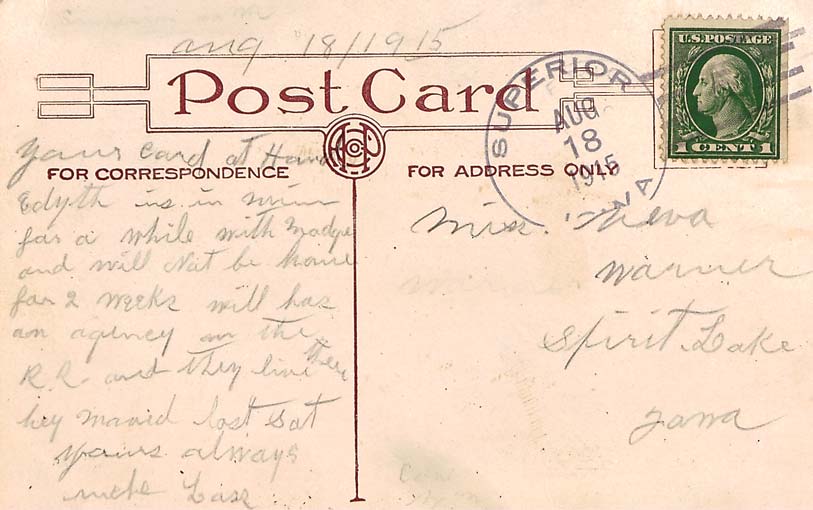 aug 18/1915
Post Card
FOR CORRESPONDENCE
FOR ADDRESS ONLY
U.S. POSTAGE
1 CENT 1
SUPERIOR
AUG
18
1915
yours card at Hand
Edyth is in minn
for a while with Madge
and will Not be home
for 2 weeks will has
an agency on the
R.R. and they live there
hey moved last Sat
yours always
Miss. Neva
Warner
Spirit Lake
Iowa